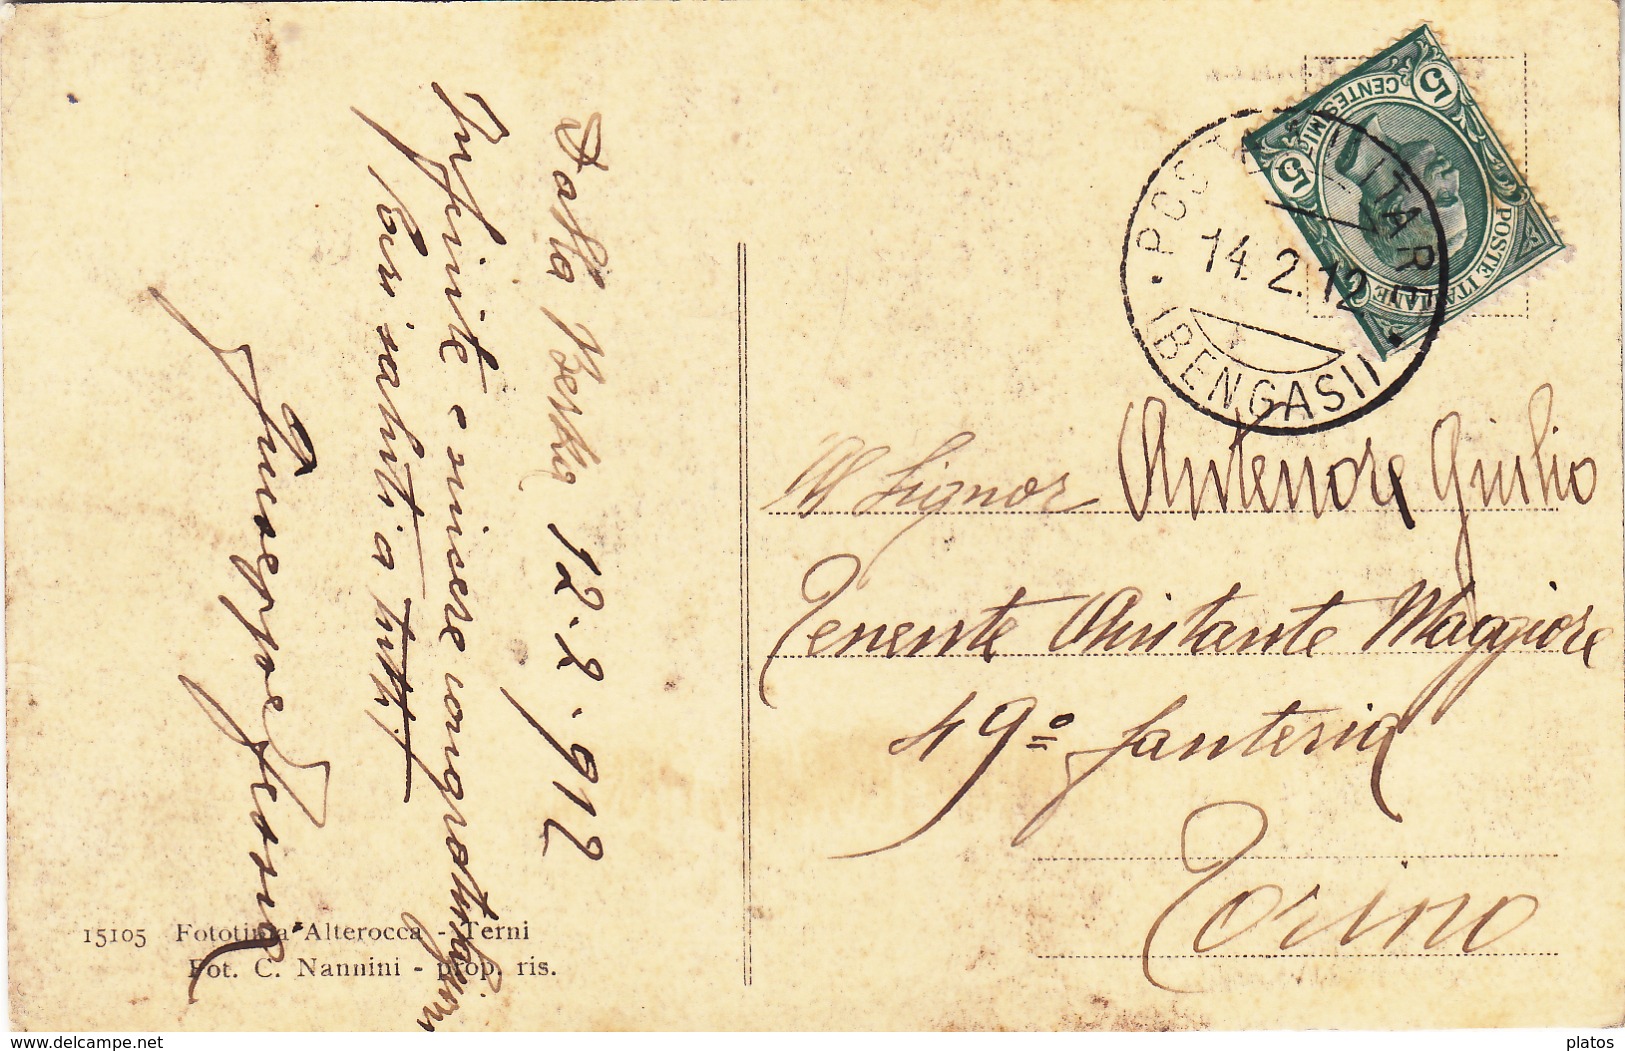 Dalla Berka 12.2.912
Infinite e sincere congratulazioni
Cari saluti a tutti
Giuseppe
15105 Fototipia Alterocca - Terni
Fot. C. Nannini - prop. ris.
5 CENTESIMI 5
POSTE ITALIANE
POSTA MILITARE
14.2.12
(BENGASI)
Al Signor Antenore Giulio
Tenente Aiutante Maggiore
49º fanteria
Torino
www.delcampe.net
platos